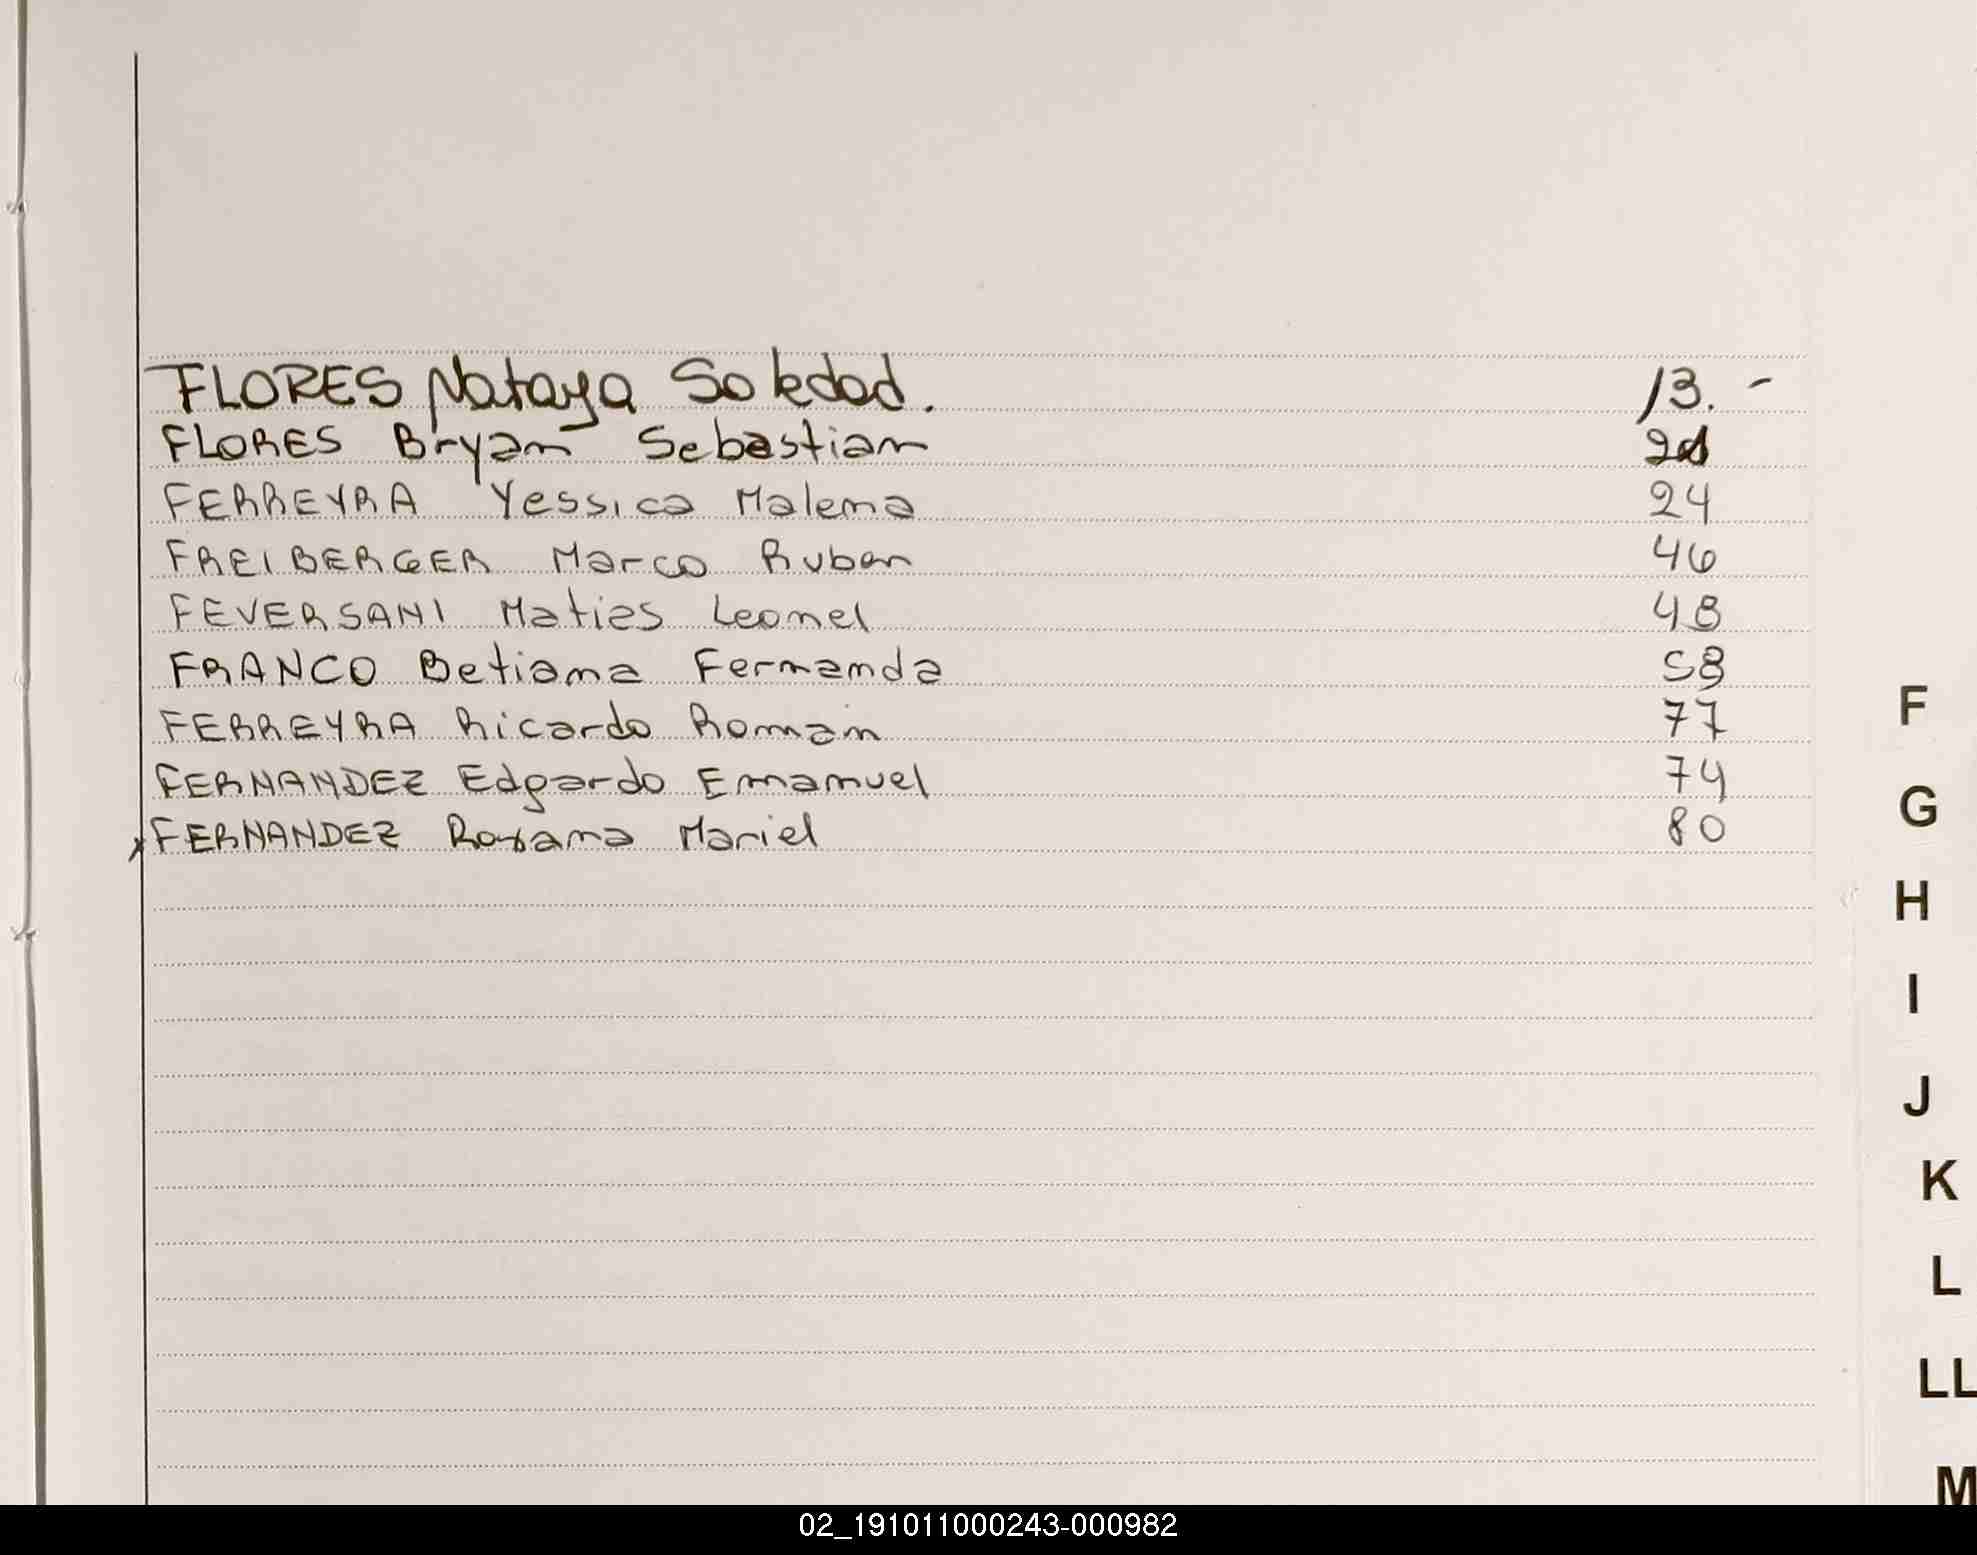 FLORES Nataya Soledad. 13. -
FLORES Bryan Sebastian
FERREYRA Yessica Malena 24
FREIBERGER Marco Ruben 46
FEVERSANI Matias Leonel 48
FRANCO Betiana Fernanda 58
FERREYRA Ricardo Roman 77
FERNANDEZ Edgardo Emanuel 74
FERNANDEZ Roxana Mariel 80
F
G
H
I
J
K
L
LL
M
02_191011000243-000982